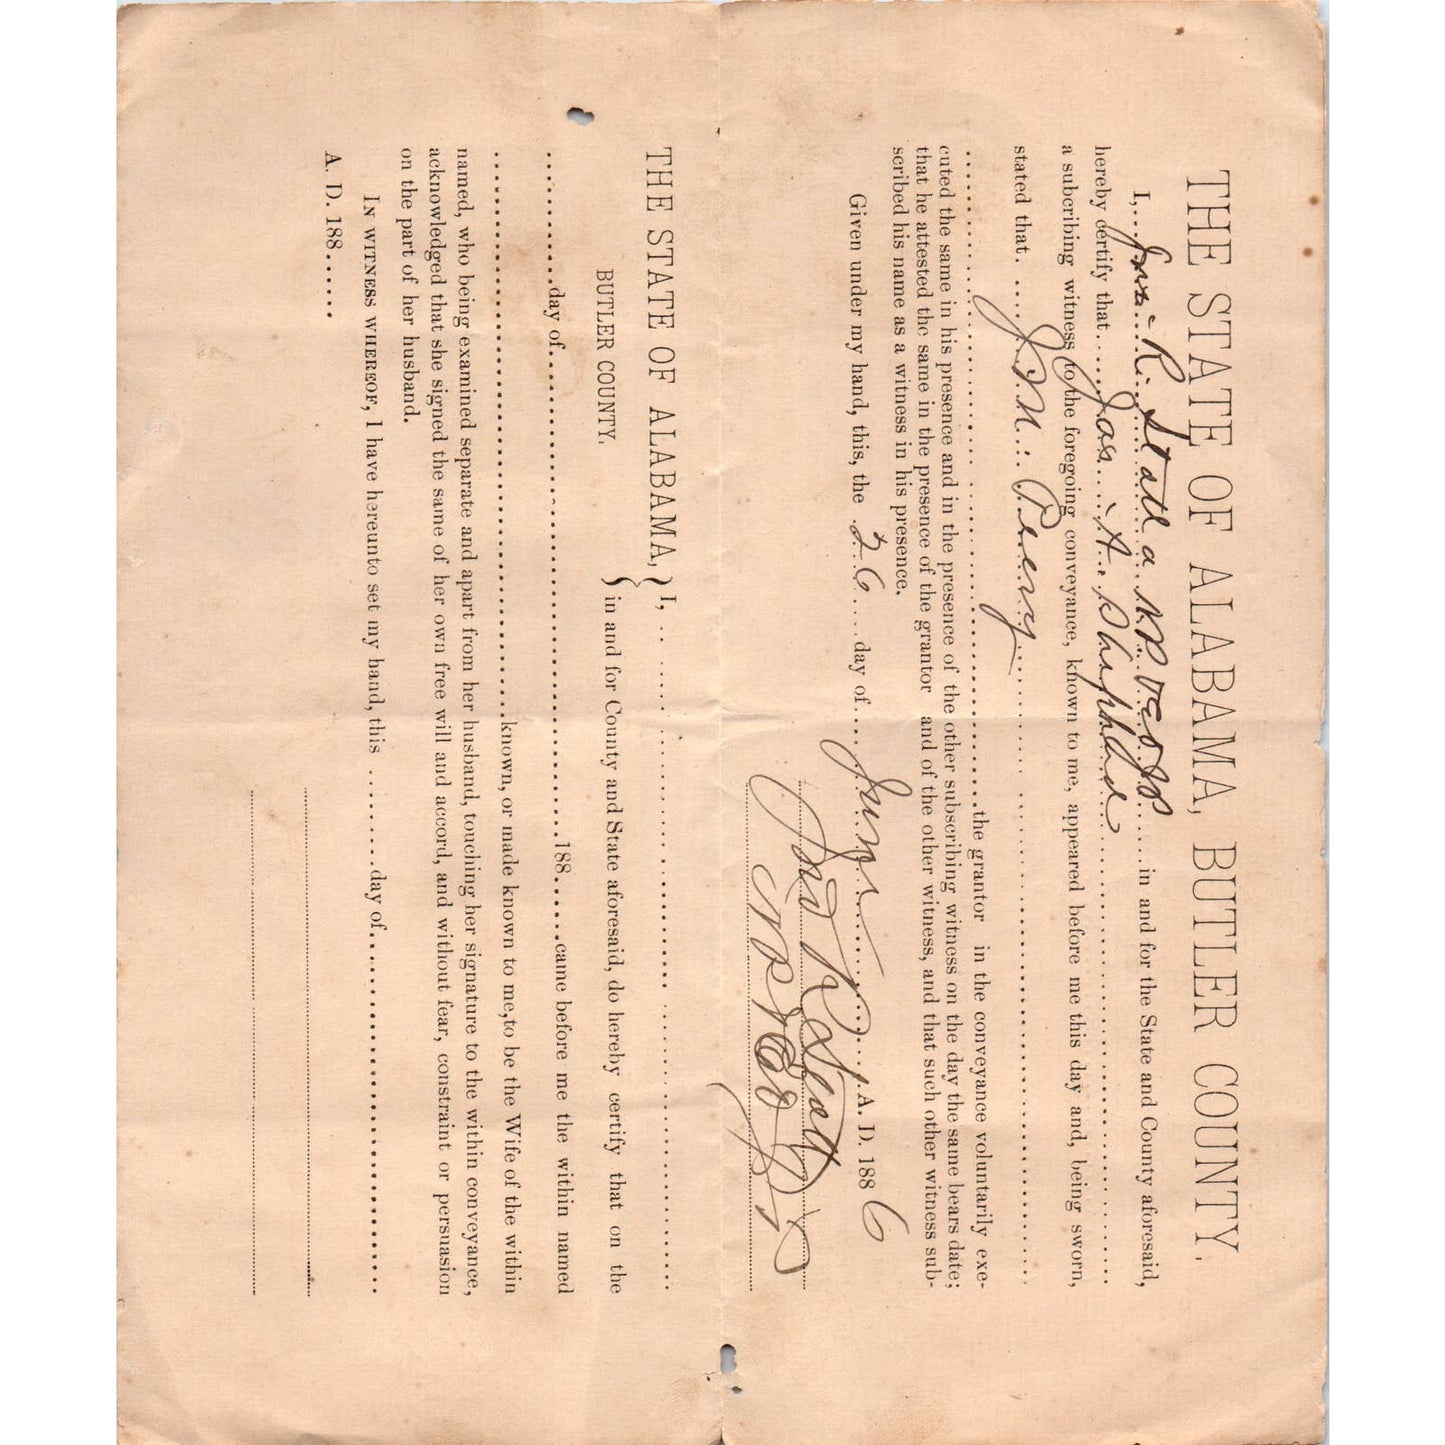 THE STATE OF ALABAMA, BUTLER COUNTY.
I, Jno. R. Scott a N P & Ex Off J P in and for the State and County aforesaid,
hereby certify that Jas. A. Shepherd
a subcribing witness to the foregoing conveyance, known to me, appeared before me this day and, being sworn,
stated that J. M. Perry
the grantor in the conveyance voluntarily exe-
cuted the same in his presence and in the presence of the other subscribing witness on the day the same bears date;
that he attested the same in the presence of the grantor and of the other witness, and that such other witness sub-
scribed his name as a witness in his presence.
Given under my hand, this, the 26 day of June A. D. 1886
Jno R Scott
N P & Ex Off J P
THE STATE OF ALABAMA, } I,
BUTLER COUNTY. } in and for County and State aforesaid, do hereby certify that on the
day of 188 came before me the within named
known, or made known to me, to be the Wife of the within
named, who being examined separate and apart from her husband, touching her signature to the within conveyance,
acknowledged that she signed the same of her own free will and accord, and without fear, constraint or persuasion
on the part of her husband.
IN WITNESS WHEREOF, I have hereunto set my hand, this day of
A. D. 188